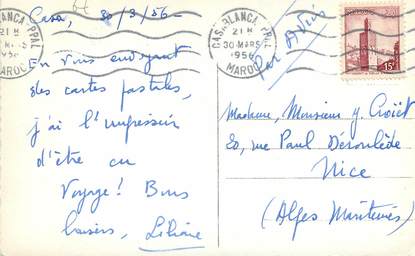 Casa, 30/3/56-
En vous envoyant
des cartes postales,
j'ai l'impression
d'être en
voyage! Bons
baisers, Liliane
CASABLANCA PPAL
21H
1956
MAROC
CASABLANCA PPAL
21H
30 MARS
1956
MAROC
Par Avion
15F
Madame, Monsieur
20, rue Paul Déroulède
Nice
(Alpes Maritimes)